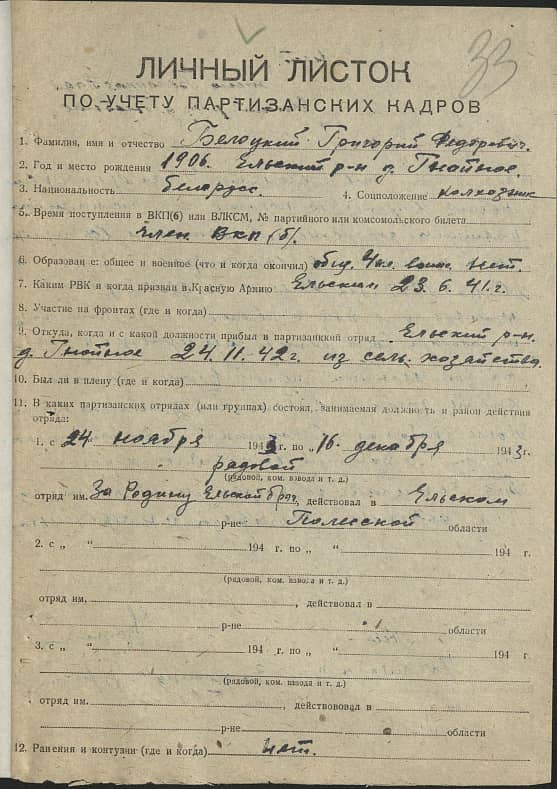 33
ЛИЧНЫЙ ЛИСТОК
ПО УЧЕТУ ПАРТИЗАНСКИХ КАДРОВ
1. Фамилия, имя и отчество Белоцкий Григорий Федорович.
2. Год и место рождения 1906. Ельский р-н д. Гнойное.
3. Национальность белорусс. 4. Соцположение колхозник
5. Время поступления в ВКП(б) или ВЛКСМ, № партийного или комсомольского билета
член ВКП(б).
6. Образование: общее и военное (что и когда окончил) общ. 4 кл. воен. нет.
7. Каким РВК и когда призван в Красную Армию Ельским 23.6.41.г.
8. Участие на фронтах (где и когда)
9. Откуда, когда и с какой должности прибыл в партизанский отряд Ельский р-н.
д. Гнойное 24.11.42г. из сель. хозяйства.
10. Был ли в плену (где и когда)
11. В каких партизанских отрядах (или группах) состоял, занимаемая должность и район действия
отряда:
1. с 24 ноября 194 г. по 16. декабря 1943 г.
рядовой
(рядовой, ком. взвода и т. д.)
отряд им. За Родину Ельской бриг, действовал в Ельском
р-не Полесской области
2. с „ “ 194 г. по „ “ 194 г.
(рядовой, ком. взвода и т. д.)
отряд им. , действовал в
р-не области
3. с „ “ 194 г. по „ “ 194 г.
(рядовой, ком. взвода и т. д.)
отряд им. , действововал в
р-не области
12. Ранения и контузии (где и когда) нет.